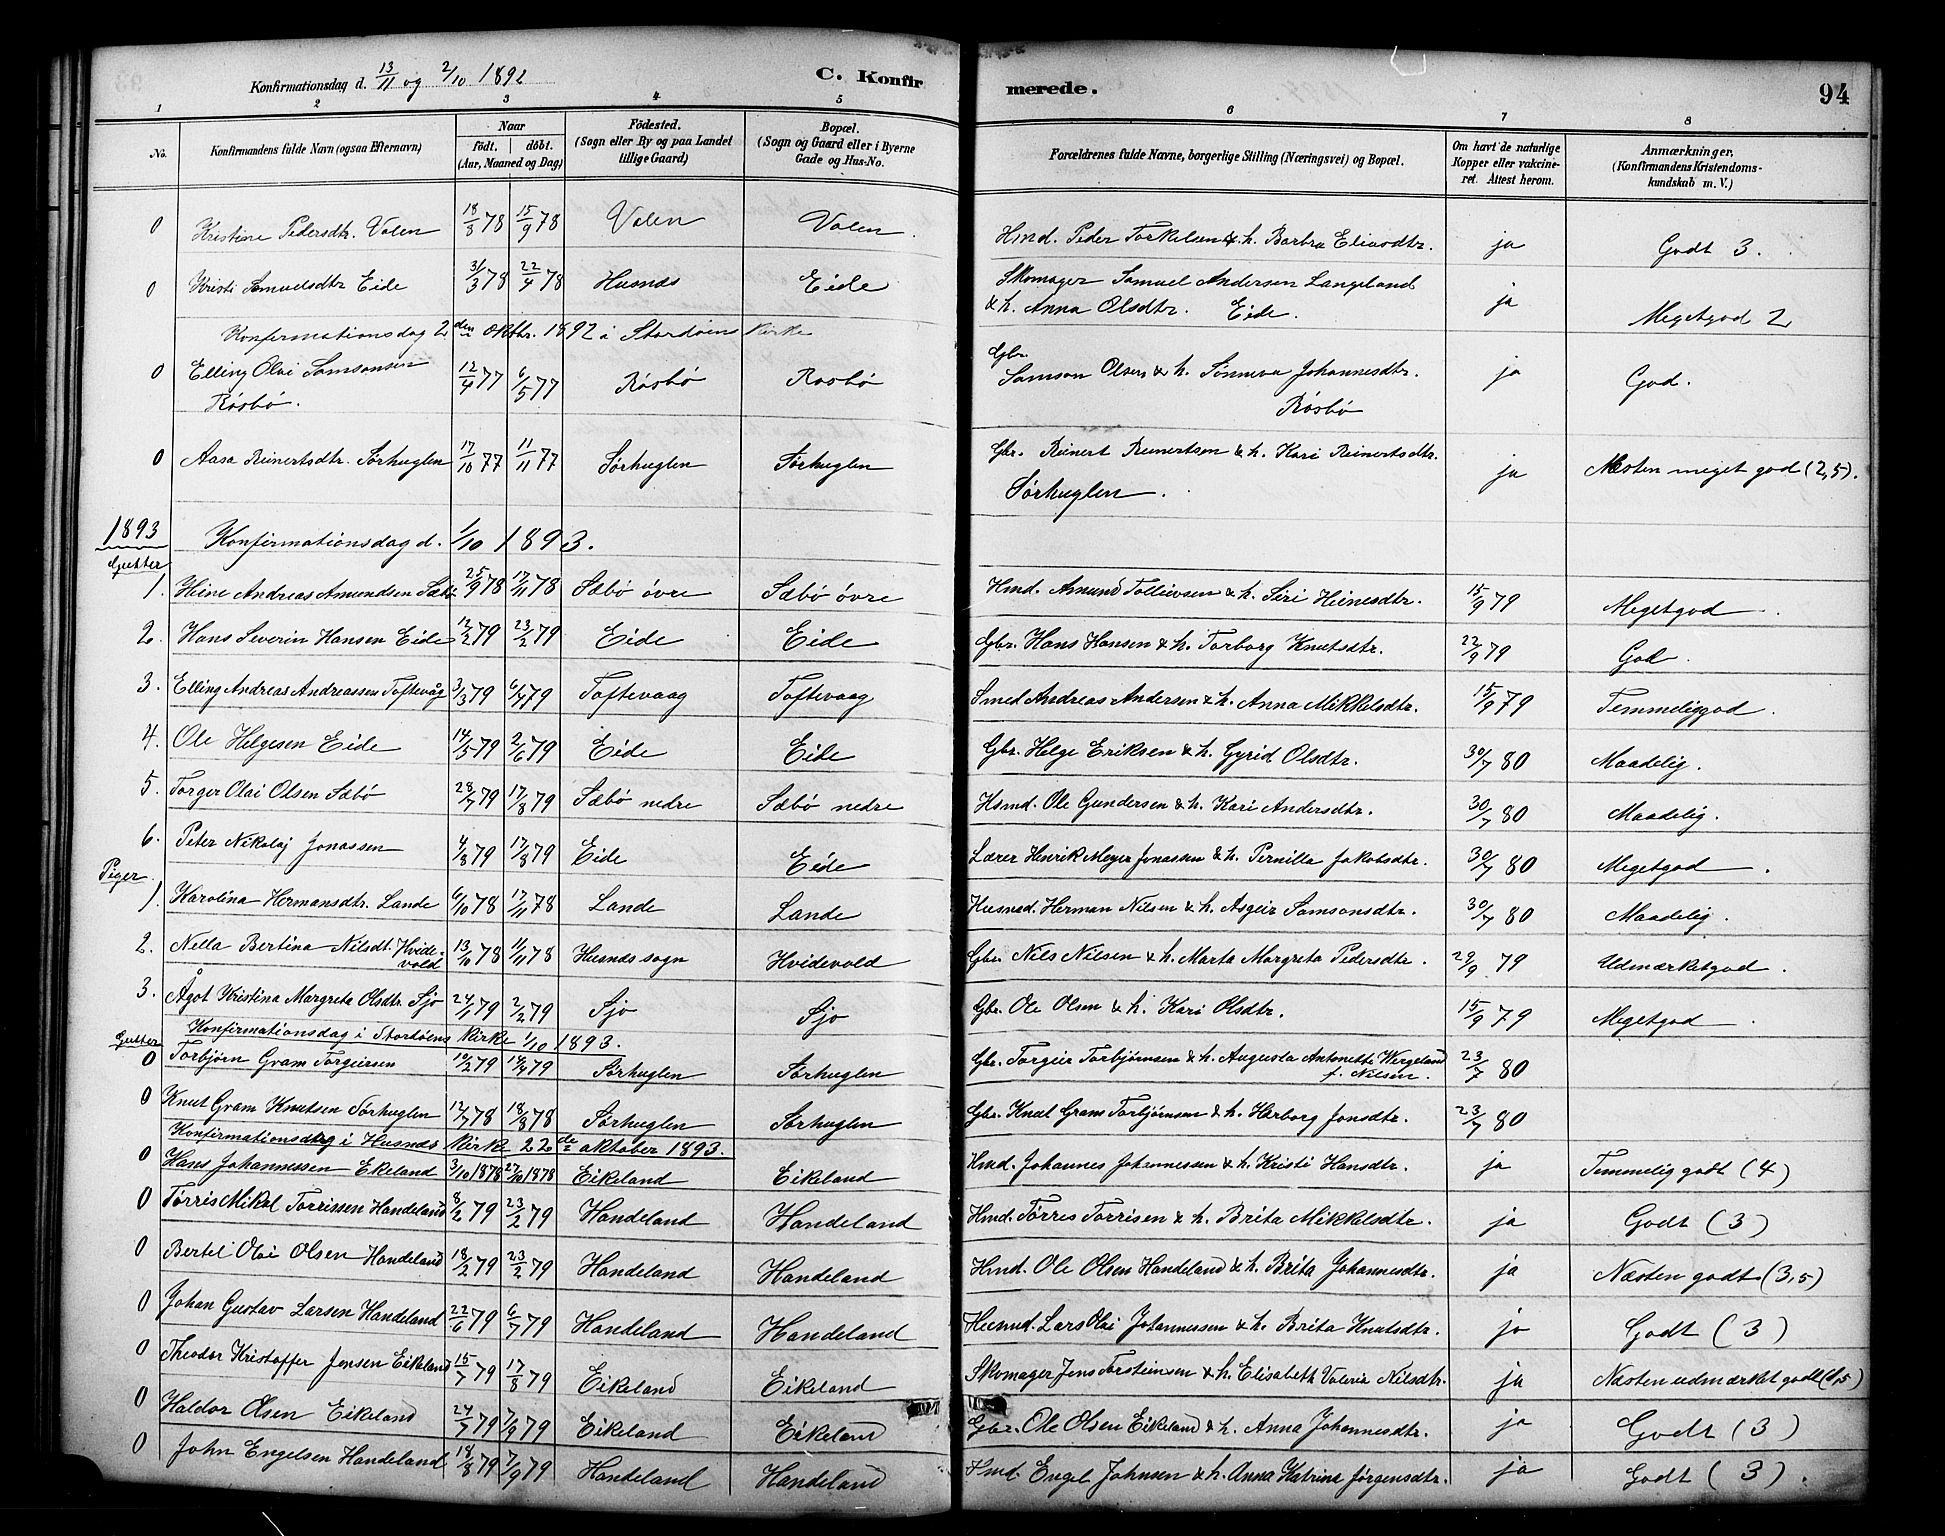 Konfirmationsdag d. 13/11 og 2/10 1892 C. Konfirmerede. 94
1 2 3 4 5 6 7 8
No. Konfirmandens fulde Navn (ogsaa Efternavn) Naar født. døbt. (Aar, Maaned og Dag) Fødested. (Sogn eller By og paa Landet tillige Gaard) Bopæl. (Sogn og Gaard eller i Byerne Gade og Hus-No. Forældrenes fulde Navne, borgerlige Stilling (Næringsvei) og Bopæl. Om havt de naturlige Kopper eller vakcineret. Attest herom. Anmærkninger. (Konfirmandens Kristendomskundskab m. V.)
0 Kristine Pedersdtr. Valen 18/8 78 15/9 78 Valen Valen. Hmd. Peder Torkelsen & h. Barbra Eliasdtr. ja Godt 3.
0 Kristi Samuelsdtr Eide 31/3 78 22/4 78 Husnds Eide Skomager Samuel Andersen Langeland
& h. Anna Olsdtr. Eide. ja Megetgod 2
Konfirmationsdag 2den oktbr. 1892 i Stordøens Kirke
0 Elling Olai Samsonsen 12/4 77 6/5 77 Røsbø Røsbø Gbr. Samson Olsen & h. Sønneva Johannesdtr. ja God.
Røsbø. Røsbø
0 Aasa Reinertsdtr. Sørhuglen 17/10 77 11/11 77 Sørhuglen Sørhuglen Gbr. Reinert Reinertsen & h. Kari Reinertsdtr. ja Næsten meget god (2,5).
Sørhuglen.
1893 Konfirmationsdag d. 1/10 1893.
Gutter
1. Heine Andreas Amundsen Sæbø 25/9 78 17/11 78 Sæbø øvre Sæbø øvre Hmd. Amund Tollevsen & h. Siri Heinesdtr. 15/9 79 Megetgod
2. Hans Severin Hansen Eide 12/2 79 23/2 79 Eide Eide Gbr. Hans Hansen & h. Torborg Knutsdtr. 22/9 79 God.
3. Elling Andreas Andreassen Toftevåg 3/3 79 6/4 79 Toftevaag Toftevaag Smed Andreas Andersen & h. Anna Mikkelsdtr. 15/9 79 Temmeliggod.
4. Ole Helgesen Eide 14/5 79 2/6 79 Eide Eide Gbr. Helge Eriksen & h. Gyrid Olsdtr. 30/7 80 Maadelig.
5. Torger Olai Olsen Sæbø 28/7 79 17/8 79 Sæbø nedre Sæbø nedre Hsmd. Ole Gundersen & h. Kari Andersdtr. 30/7 80 Maadelig.
6. Peter Nikolaj Jonassen 4/8 79 17/8 79 Eide Eide Lærer Henrik Meyer Jonassen & h. Pernilla Jakobsdtr. 30/7 80 Megetgod.
Piger
1. Karolina Hermansdtr. Lande 6/10 78 17/11 78 Lande Lande Husmd. Herman Nilsen & h. Asgeir Samsonsdtr. 30/7 80 Maadelig.
2. Nella Bertina Nilsdt. Hvidevold 13/10 78 11/11 78 Husnds sogn Hvidevold Gbr. Nils Nilsen & h. Marta Margreta Pedersdtr. 29/9 79 Udmærketgod.
3. Ågot Kristina Margreta Olsdtr. Sjo 24/1 79 2/2 79 Sjo Sjo Gbr. Ole Olsen & h. Kari Olsdtr. 15/9 79 Megetgod.
Konfirmationsdag i Stordøens Kirke 1/10 1893.
Gutter
0 Torbjørn Gram Torgeirsen 19/2 79 14/4 79 Sørhuglen Sørhuglen Gbr. Torgeir Torbjørnsen & h. Augusta Antonette Wergeland f. Nilsen. 23/7 80
0 Knut Gram Knutsen Sørhuglen 12/7 78 18/8 78 Sørhuglen Sørhuglen Gbr. Knut Gram Torbjørnsen & h. Herborg Jonsdtr. 23/7 80
Konfirmationsdag i Husnds Kirke 22de oktober 1893.
0 Hans Johannessen Ekeland 3/10 1878 27/10 1878 Eikeland Eikeland Hmd. Johannes Johannessen & h. Kristi Hansdtr. ja Temmelig godt (4)
0 Tørris Mikal Torrissen Handeland 8/2 79 23/2 79 Handeland Handeland Hmd. Tørres Torrisen & h. Brita Mikkelsdtr. ja Godt (3)
0 Bertel Olai Olsen Handeland 18/2 79 23/2 79 Handeland Handeland Hmd. Ole Olsen Handeland & h. Brita Johannesdtr. ja Næsten godt (3,5)
0 Johan Gustav Larsen Handeland 22/6 79 6/7 79 Handeland Handeland Husmd. Lars Olai Johannessen & h. Brita Knutsdtr. ja Godt (3)
0 Theodor Kristoffer Jensen Eikeland 15/7 79 17/8 79 Eikeland Eikeland Skomager Jens Torsteinsen & h. Elisabeth Valeria Nilsdtr. ja Næsten udmærket godt (1,5)
0 Haldor Olsen Eikeland 24/7 79 7/9 79 Eikeland Eikeland Gbr. Ole Olsen Eikeland & h. Anna Johannesdtr. ja Godt (3)
0 John Engelsen Handeland 18/8 79 7/9 79 Handeland Handeland Hmd. Engel Johnsen & h. Anna Katrine Jørgensdtr. ja Godt (3).